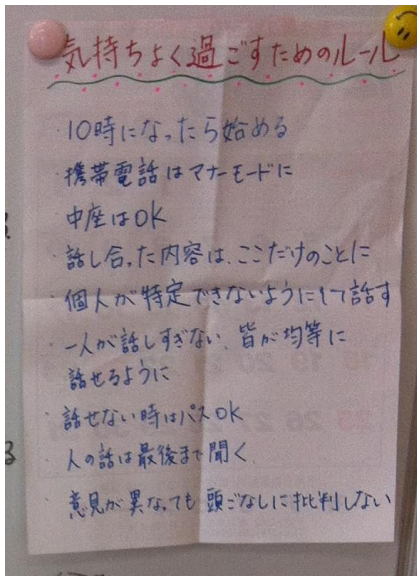 気持ちよく過ごすためのルール
・10時になったら始める
・携帯電話はマナーモードに
・中座はOK
・話し合った内容は、ここだけのことに
・個人が特定できないようにして話す
・一人が話しすぎない、皆が均等に
話せるように
・話せない時はパスOK
・人の話は最後まで聞く
・意見が異なっても頭ごなしに批判しない